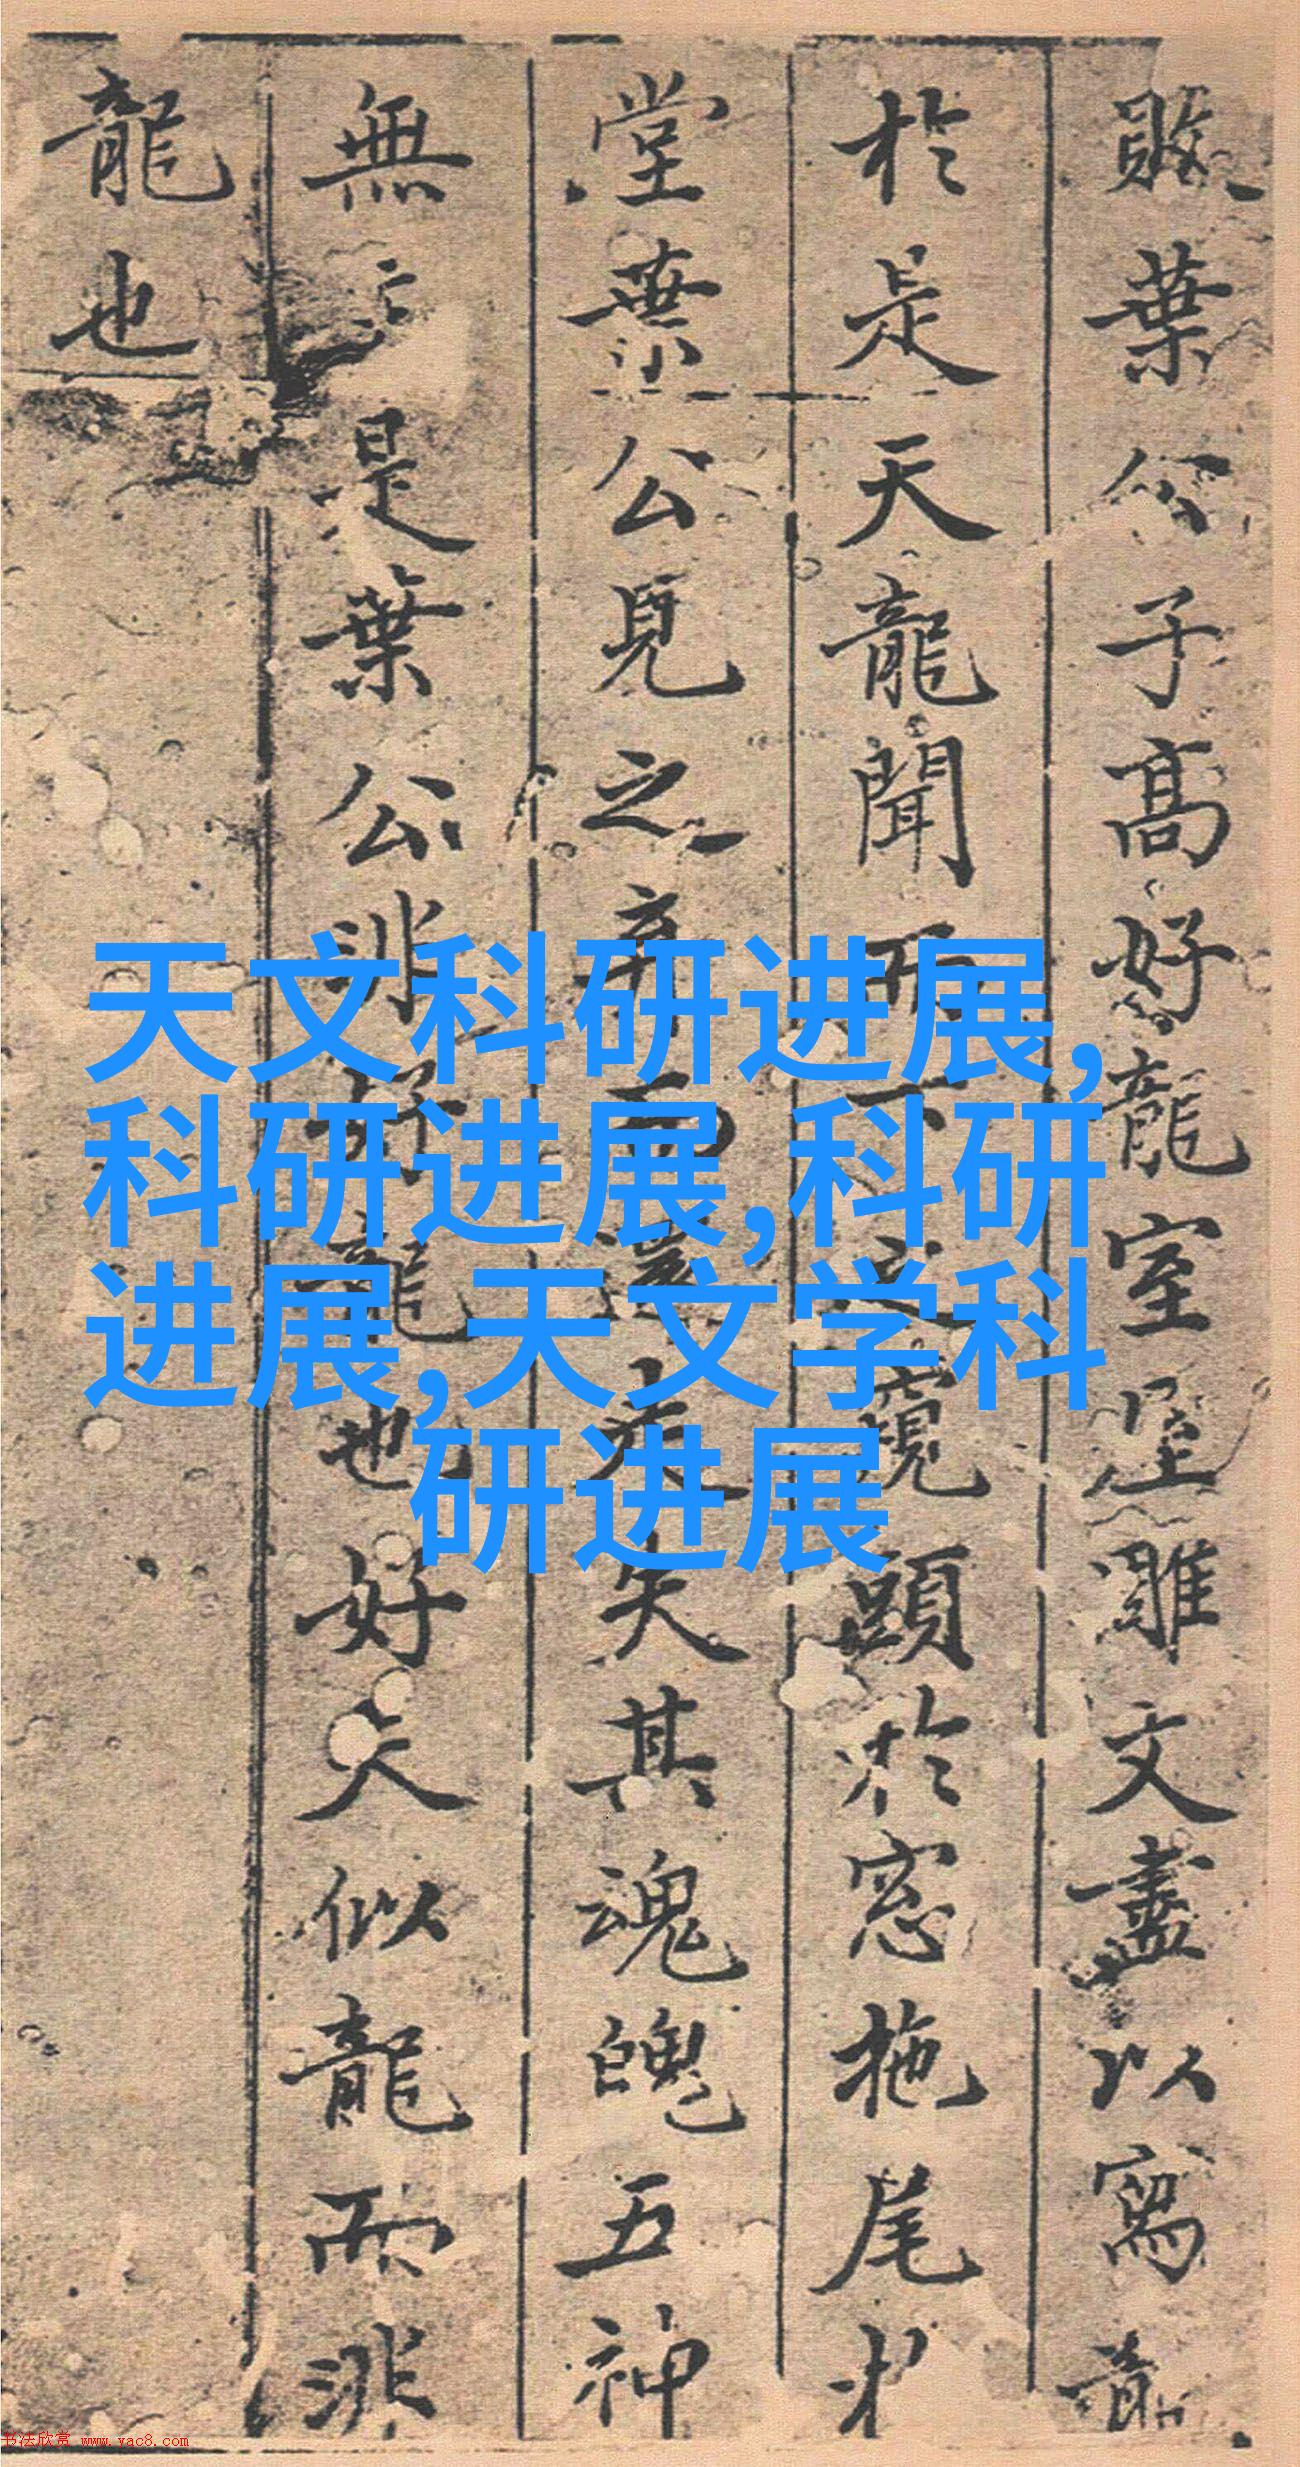 敗葉公子高好龍室屋雕文盡以寫龍
於是天龍聞而下之窺頭於窓拖尾
堂葉公見之弃而還走失其魂魄五神
無主是葉公非好龍也好夫似龍而非
龍也
天文科研进展,
科研进展,科研
进展,天文学科
研进展
书法欣赏 www.yac8.com